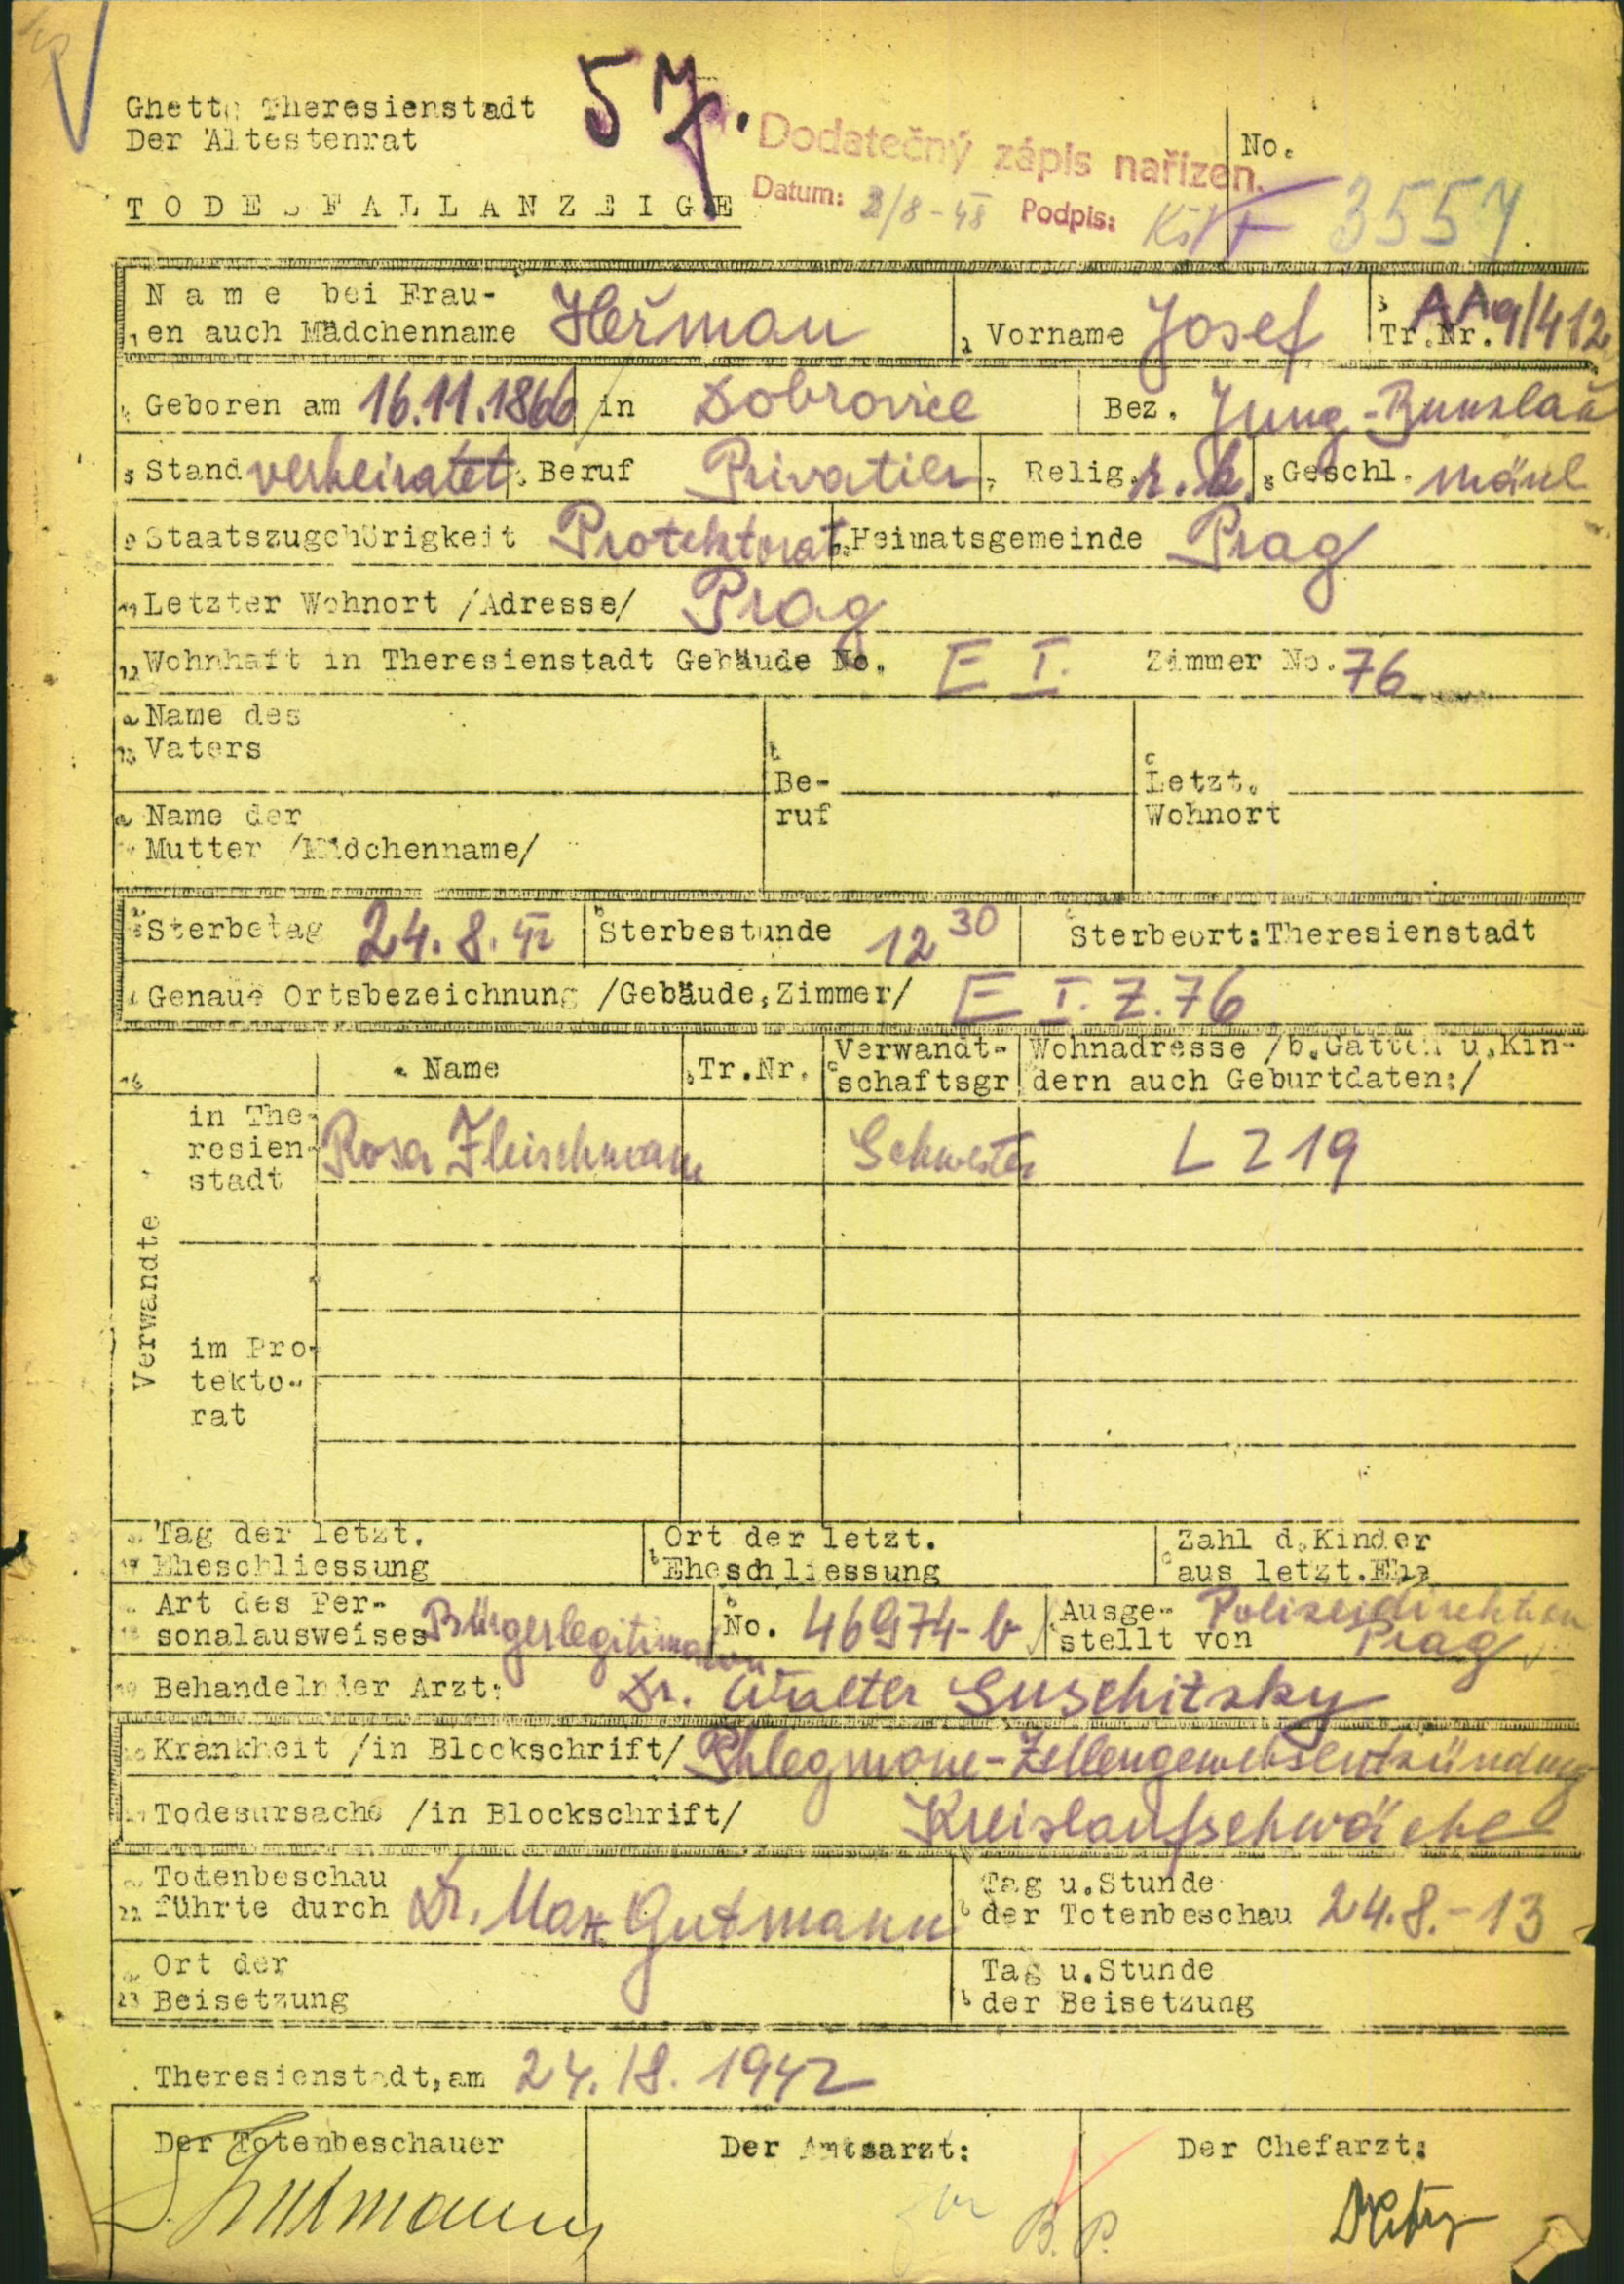 Ghetto Theresienstadt
Der Ältestenrat
57.
Dodatečný zápis nařízen.
Datum: 2/8-48 Podpis:
No.
3557
TODESFALLANZEIGE
Name bei Frau-
en auch Mädchenname Heřman
Vorname Josef
Tr.Nr. AAq/412
Geboren am 16.11.1866 in Dobrovice Bez. Jung-Bunzlau
Stand verheiratet Beruf Privatier Relig. r.k. Geschl. männl
Staatszugehörigkeit Protektorat Heimatsgemeinde Prag
Letzter Wohnort /Adresse/ Prag
Wohnhaft in Theresienstadt Gebäude No. E I. Zimmer No. 76
Name des
Vaters
Be-
ruf
Letzt.
Wohnort
Name der
Mutter /Mädchenname/
Sterbetag 24.8.42 Sterbestunde 12 30 Sterbeort: Theresienstadt
Genaue Ortsbezeichnung /Gebäude, Zimmer/ E I. Z. 76
Name Tr.Nr. Verwandt-
schaftsgr
Wohnadresse /b.Gatten u.Kin-
dern auch Geburtdaten:/
Verwandte
in The-
resien-
stadt
Rosa Fleischmann Schwester L 219
im Pro-
tekto-
rat
Tag der letzt.
Eheschliessung
Ort der letzt.
Eheschliessung
Zahl d.Kinder
aus letzt.Ehe
Art des Per-
sonalausweises Bürgerlegitimation
No. 46974-b
Ausge-
stellt von Polizeidirektion
Prag
Behandelnder Arzt: Dr. Walter Suschitzky
Krankheit /in Blockschrift/ Phlegmone-Zellengewebsentzündung
Todesursache /in Blockschrift/ Kreislaufschwäche
Totenbeschau
führte durch Dr. Max Gutmann
Tag u.Stunde
der Totenbeschau 24.8.-13
Ort der
Beisetzung
Tag u.Stunde
der Beisetzung
Theresienstadt, am 24./8. 1942
Der Totenbeschauer
Der Amtsarzt:
Der Chefarzt:
Gutmann
B.P.